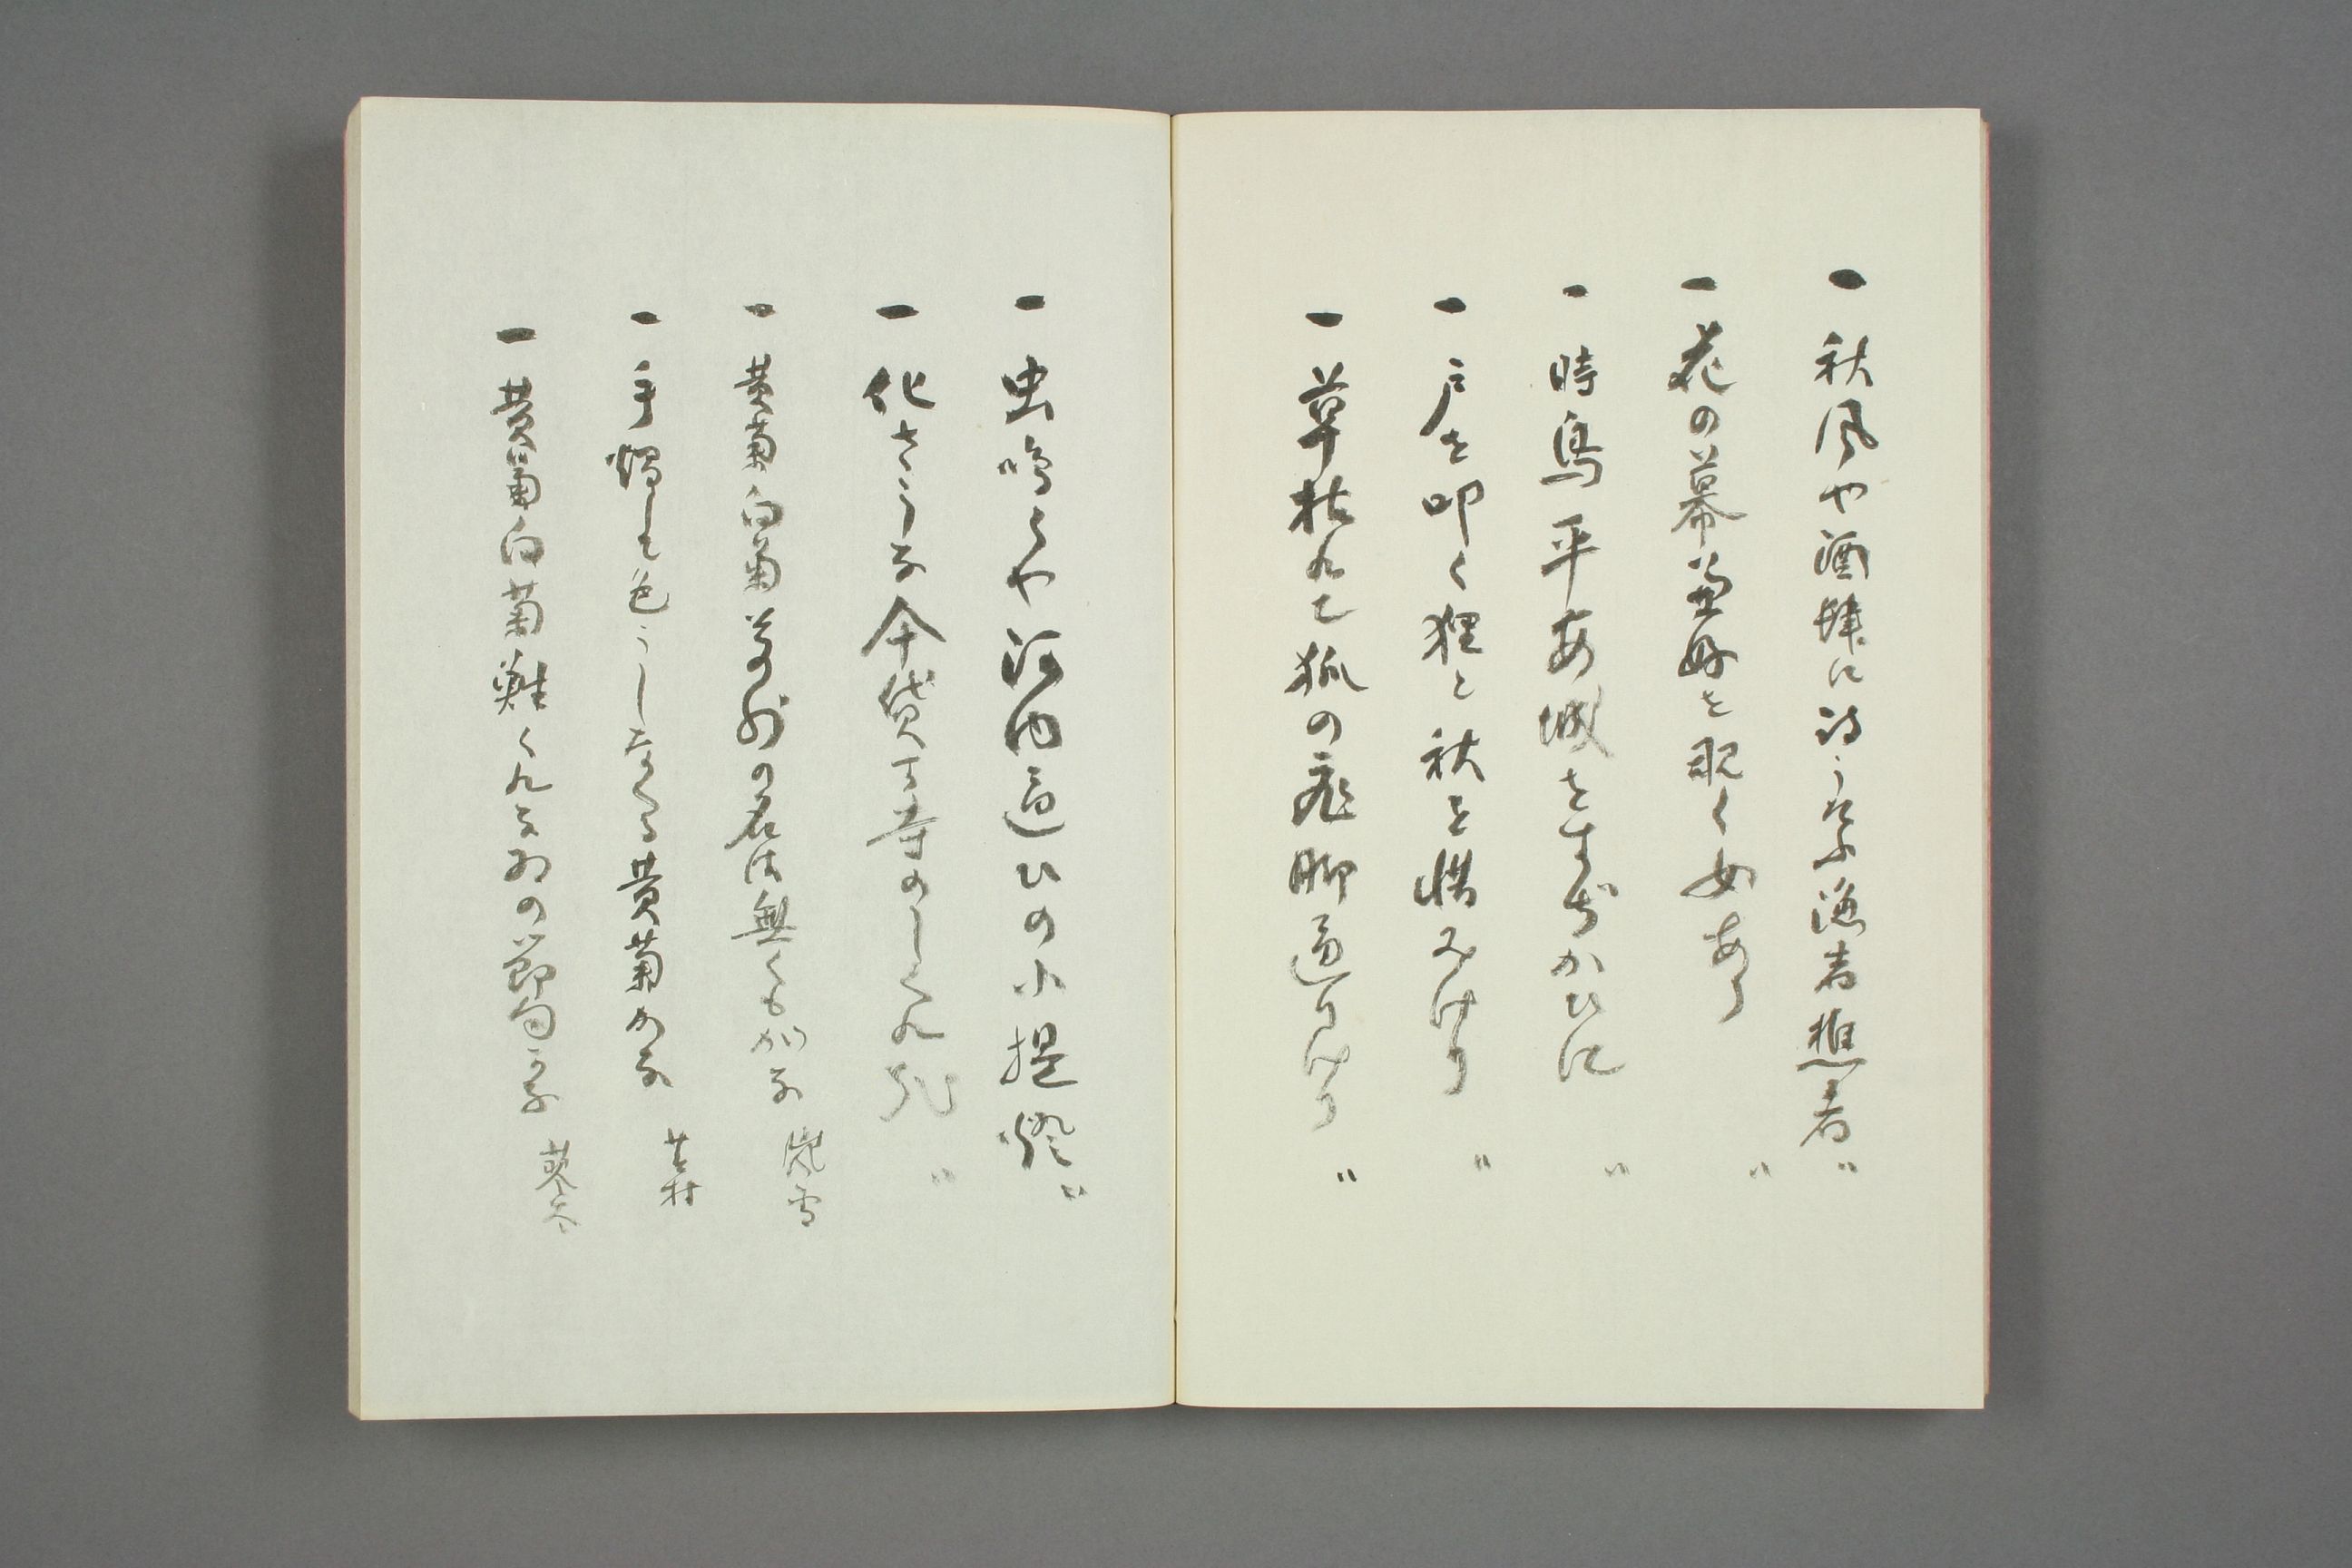 一 秋風や酒肆に詩うたふ漁者樵者 〃
一 花の幕兼好を覗く女あり 〃
一 時鳥平安城をすぢかひに 〃
一 戸を叩く狸と秋を惜みけり 〃
一 草枯れて狐の飛脚通りけり 〃
一 虫鳴くや河内通ひの小提燈 〃
一 化さうな傘貸す寺のしぐれ哉 〃
一 黄菊白菊其の外の名は無くもがな 嵐雪
一 手燭して色うしなへる黄菊かな 蕪村
一 黄菊白菊難くれなゐの節句かな 蓼太